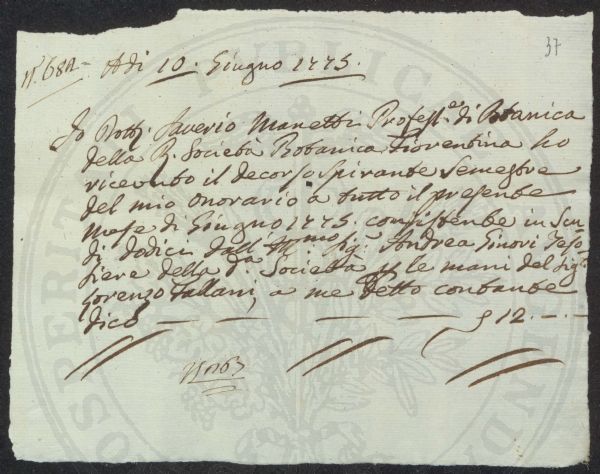 37
N.° 68A = Adi 10. Giugno 1775.
Io Dott: Saverio Manetti Profess.re di Botanica
della R. Società Botanica Fiorentina ho
ricevuto il decorso spirante Semestre
del mio onorario a tutto il presente
Mese di Giugno 1775. consistente in Scu-
di dodici dall' Ill.mo Sig: Andrea Ginori Teso-
riere della d.a Società per le mani del Sig.
Lorenzo Tallani, a me detto contante
dico — — — — 12. — . —